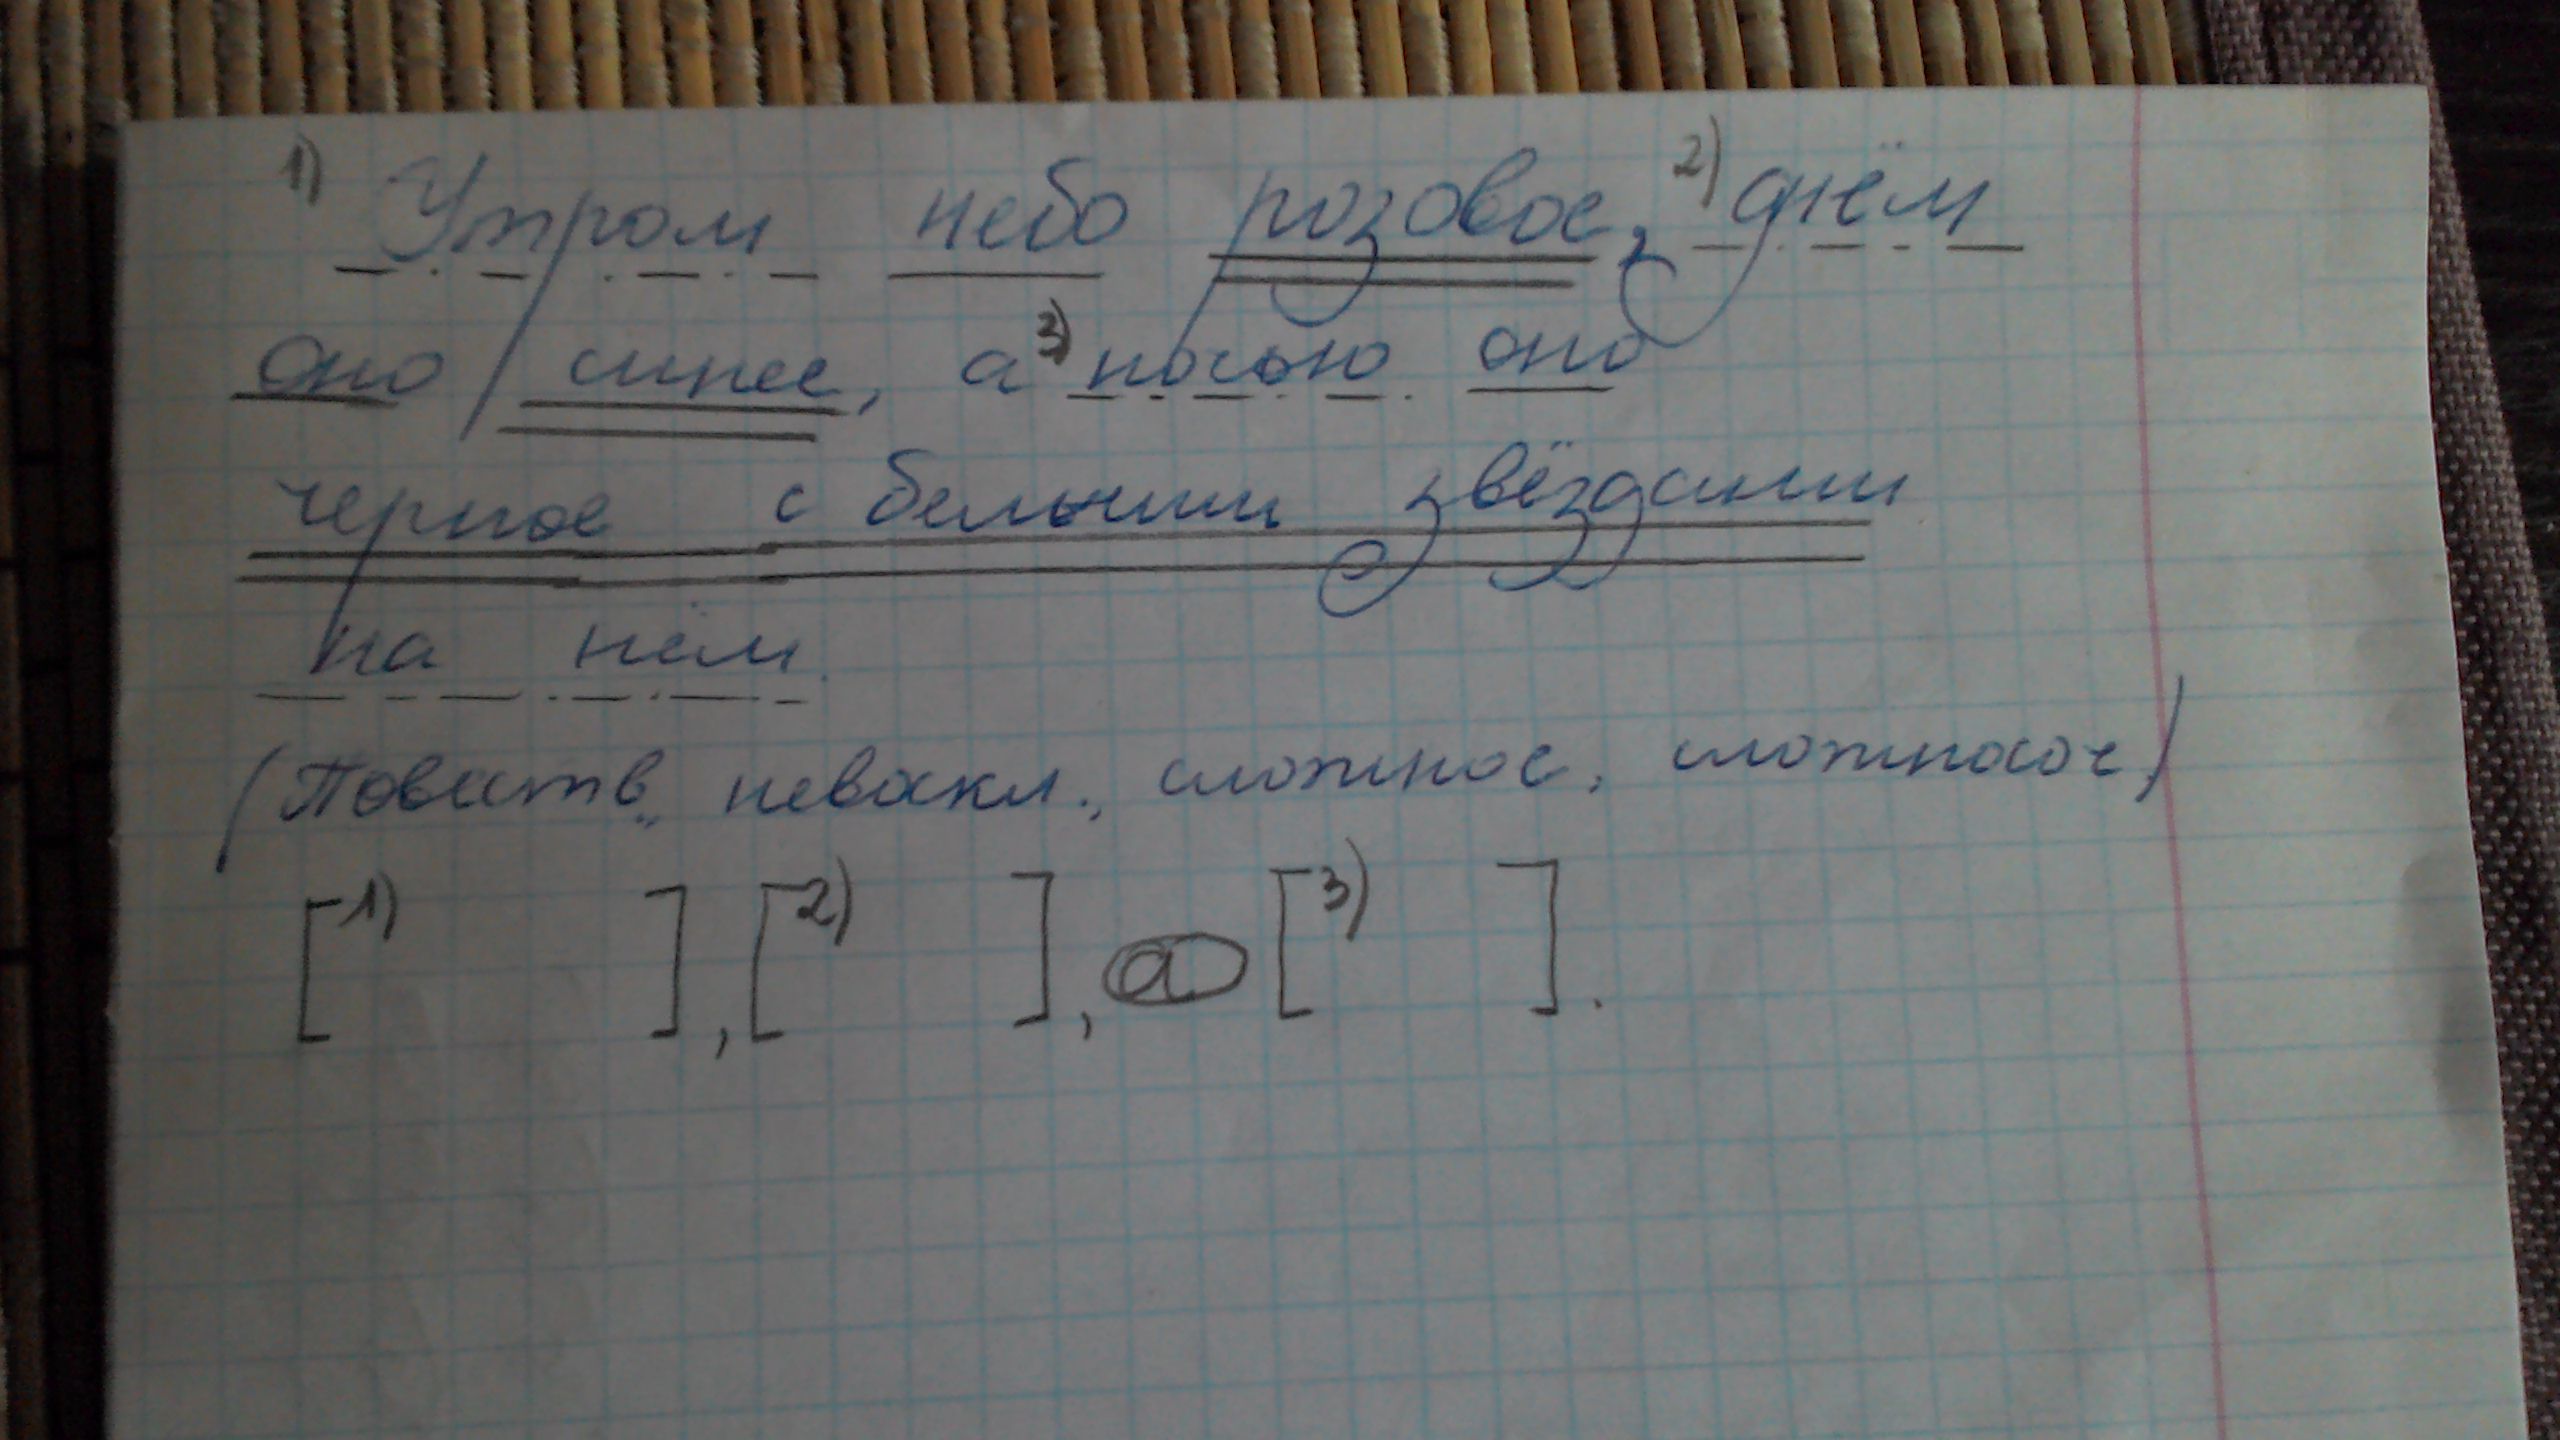 1) Утром небо розовое, 2) днём
оно синее, а 3) ночью оно
черное с белыми звёздами
на нём.
(Повеств., невоскл., сложное, сложносоч.)
[1) ], [2) ], а [3) ].